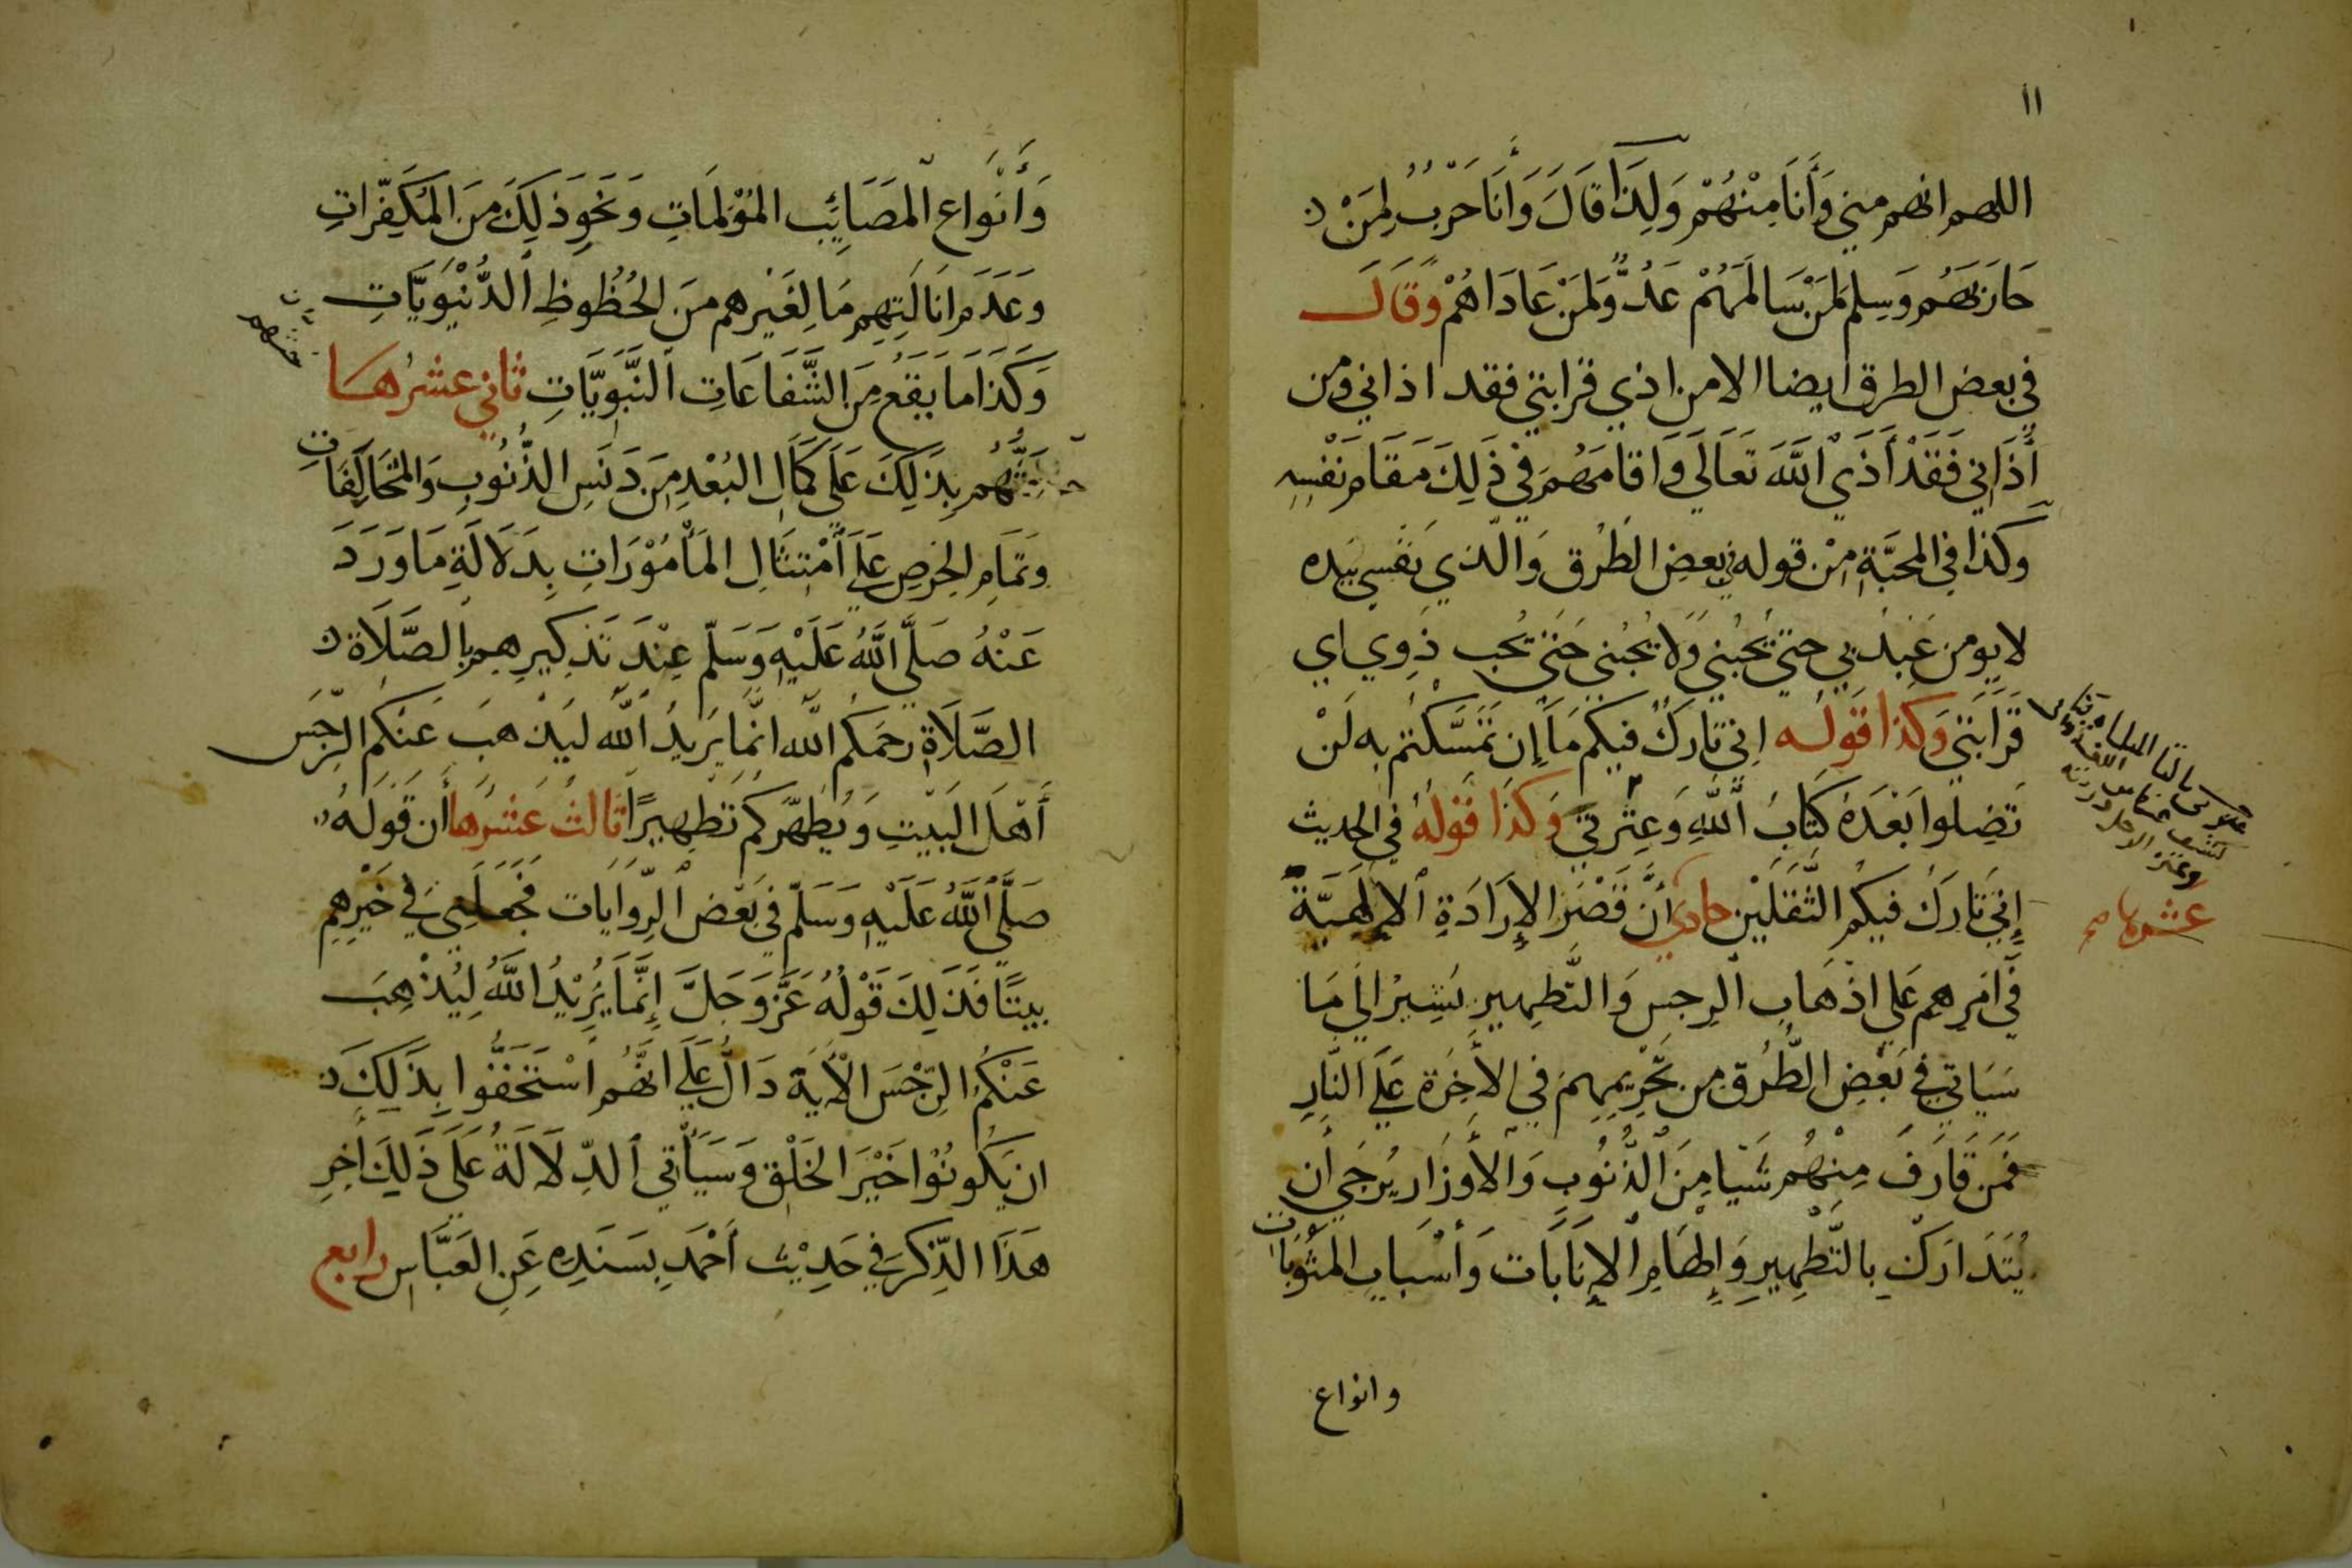 ١١
اللهم انهم مني وَأَنَا مِنْهُمْ وَلِذَا قَالَ وَأَنَا حَرْبٌ لِمَنْ
حَارَبَهُم وَسِلم لِمَنْ سَالَمَهُمْ عَدُوٌّ لِمَنْ عَادَاهُمْ وَقَالَ
في بعض الطرق ايضا الا من اذي قرابتي فقد اذاني ومن
أَذَانِي فَقَدْ أَذَي اللَّهَ تَعَالَي وَاقامَهُم فِي ذَلِكَ مَقَامَ نَفْسِهِ
وكذا في المحبَّةِ مِنْ قوله في بعضِ الطُرق وَالّذي نَفسي بيده
لا يومن عَبدٌ بي حتي يُحبُّنِي وَلَا يُحُبُني حَتي يُحب ذَوِي اي
قَرَابَتي وَكَذَا قَوله اِنّي تَارِكٌ فيكم مَا إِن تَمَسَّكتُم به لَنْ
تَضِلوا بَعْدَهُ كِتَابُ اللَّهِ وَعِتْرَتِي وَكَذَا قَولُهُ في الحديث
إِنِّي تَارِكُ فيكُم الثَّقَلَيْنِ حادي أَنَّ قَصْرَ الإِرَادَةِ الإِلَهِيَّة
عشرها صح
فِي أَمرِهم عَلي اذْهَابِ الرِجسِ وَالتَّطهِيرِ يُشِيرُ الي مَا
سَيَاتي فِي بَعْضِ الطُّرُقِ من تَحْرِيمِهِم في الأَخِرَةِ عَلَي النَّارِ
فَمَن قَارَفَ مِنْهُم شَيْا مِنَ الذُّنُوبِ وَالأَوزَارِ يُرجَي أَن
يُتَدَارَكَ بِالتَّطهِيرِ وَإِلهَامِ الإِنَابَات وَأَسْبَابِ المَثُوبَاتِ
وانواع
وَأَنْوَاعِ الْمَصَايِبِ المُؤْلِمَاتِ وَنَحوِ ذَلِكَ مِنَ المُكَفِّرَاتِ
وَعَدَمِ انَالَتِهِم مَا لِغَيْرِهم مِنَ الحُظُوظِ الدُّنْيَوِيَّاتِ
وَكَذَا مَا يَقَعُ مِنَ الشَّفَاعَاتِ النَّبَوِيَّاتِ ثاني عشرُها
حَثُّهُم بِذَلِكَ عَلَى كَمَالِ البُعْدِ مِن دَنَسِ الذُّنُوبِ وَالمُخَالَفَاتِ
وَتَمَامِ الحِرصِ عَلَي أَمْتِثَالِ المَأْمُوْرَاتِ بِدَلَالَةِ مَا وَرَدَ
عَنْهُ صَلَّى اللَّهُ عَلَيْهِ وَسَلّم عِنْدَ تَذكِيرِهِم بِالصَّلَاةِ
الصَّلَاةَ رحمَكُم اللَّه انَّمَا يُرِيدُ اللَّه ليَذهبَ عَنكُم الرِّجسَ
أَهْلَ البَيْتِ وَيُطَهِّرَكم تَطهِيرًا ثَالثُ عَشرُها أَن قَولَهُ
صَلَّي اللَّهُ عَلَيْهِ وَسَلّم فِي بَعْض الرِّوَايَات فَجَعَلَنِي فِي خَيْرِهِم
بيتًا فَذَلِكَ قَوْلُهُ عَزَّ وَجَلَّ إِنَّمَا يُرِيْدُ اللَّهُ لِيُذْهِبَ
عَنْكُمُ الرِّجْسَ الْأَيَة دَالٌّ عَلَي انَّهُم اسْتَحَقُّوا بِذَلِكَ
ان يَكُونُوْا خَيْرَ الخَلْقِ وَسَيَأْتِي الدِّلَالَةُ عَلَي ذَلِكَ أَخِرِ
هَذَا الذِّكرِ فِي حَدِيْث أَحْمَد بِسَنَدِهِ عَنِ العَبَّاسِ رابع